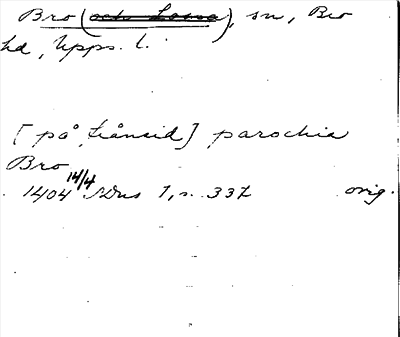 Bro (och Lossa), sn, Bro
hd, Upps. l.
[på trånsid] parochia
Bro
1404 14/4 SDns 1, s. 337 orig.